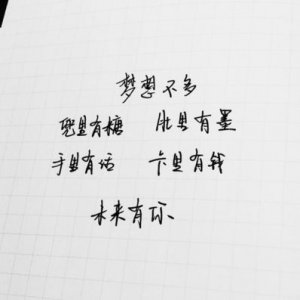 梦想不多
兜里有糖 肚里有墨
手里有活 卡里有钱
未来有你